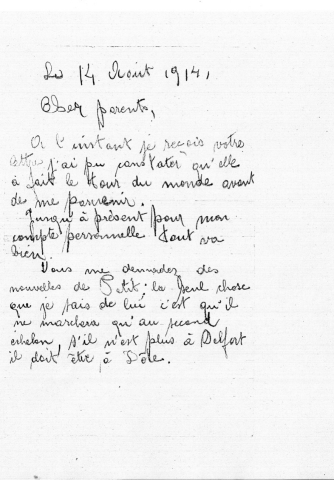 Le 14 Août 1914,
Cher parents,
A l'instant je reçois votre
lettre j'ai pu constater qu'elle
à fait le tour du monde avant
de me parvenir.
Jusqu'à présent pour mon
compte personnelle tout va
bien.
Vous me demandez des
nouvelles de Petit: la seul chose
que je sais de lui c'est qu'il
ne marchera qu'au second
échelon, s'il n'est plus à Belfort
il doit être à Dôle.